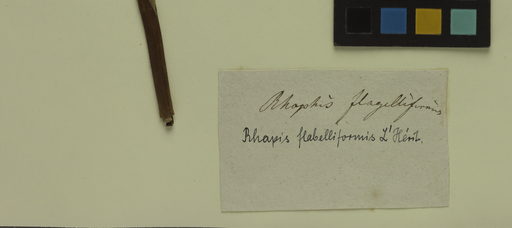 Rhaphis flagelliformis
Rhapis flabelliformis L'Hérit.